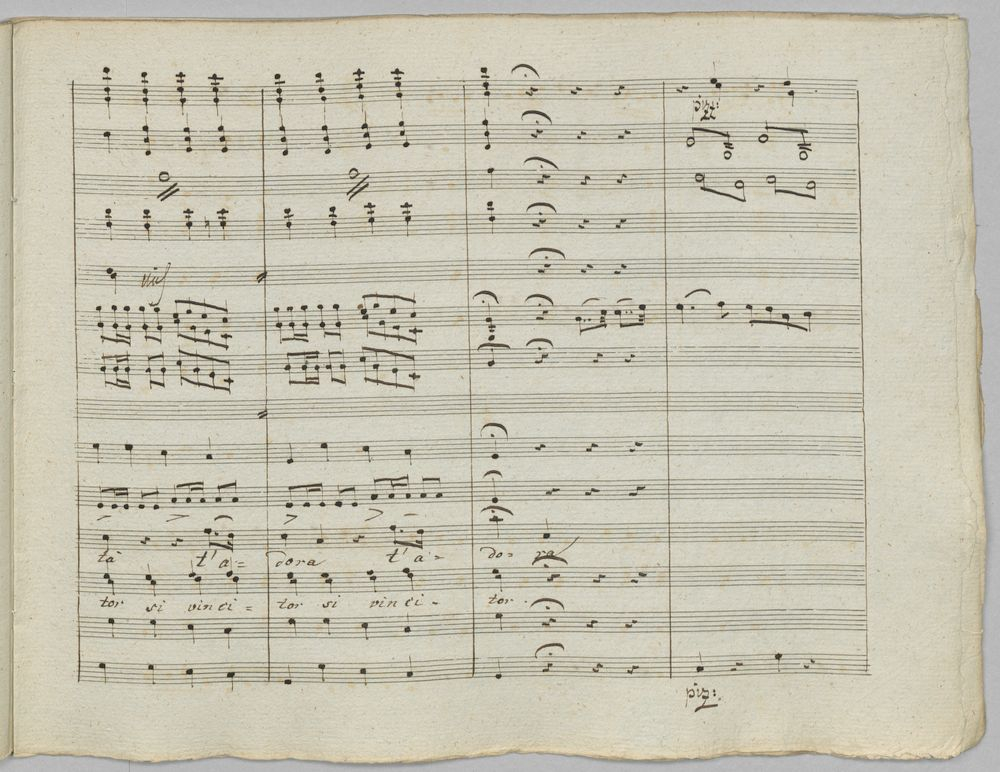 piz:
tà t'a= dora t'a= do= ra
tor si vinci= tor si vinci= tor.
piz: